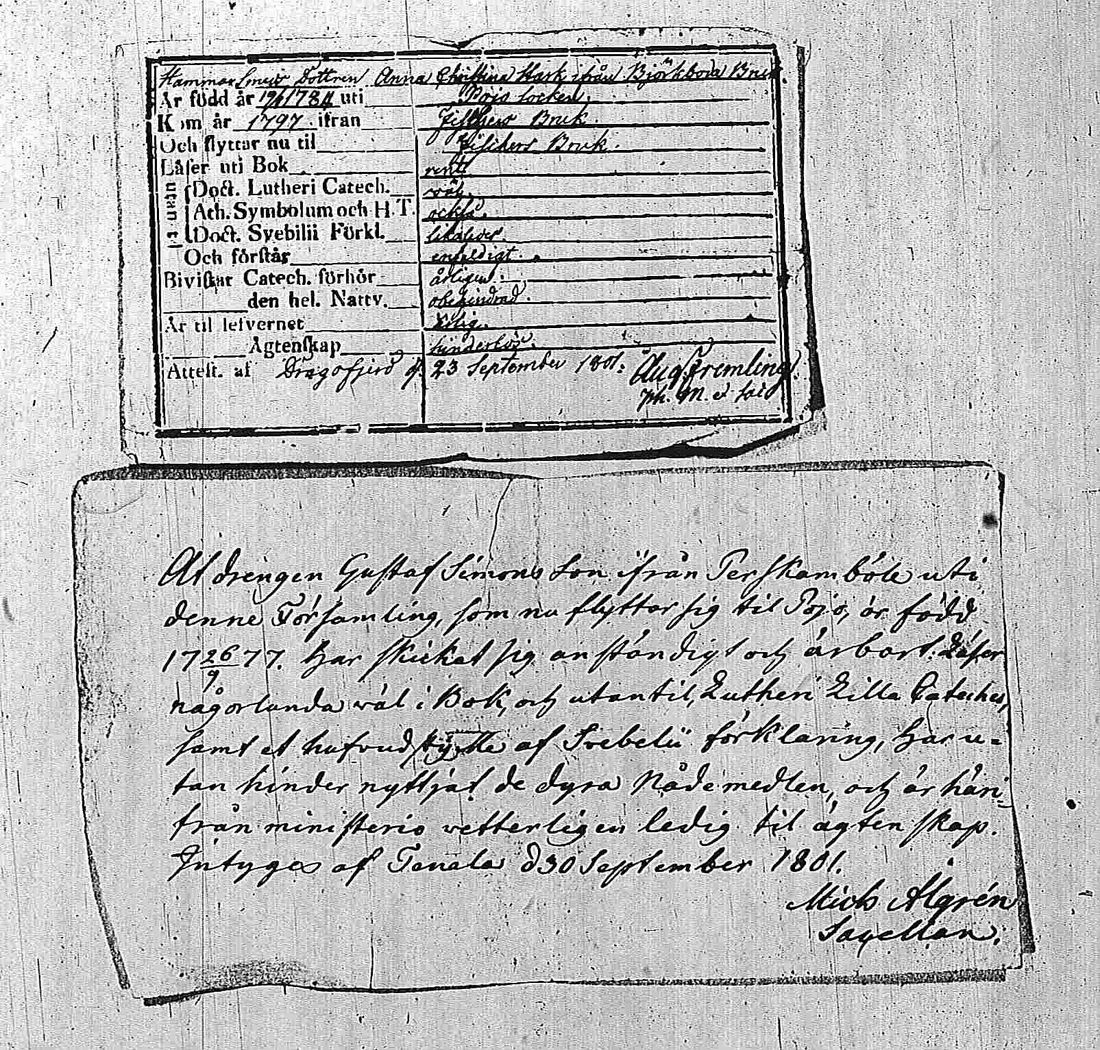 Hammar Smeds Dottren Anna Christina Stark ifrån Björkboda Bruk
Är född år 1784 uti Pojo Socken,
Kom år 1797 ifran Fiskars Bruk.
Och flyttar nu til Fiskars Bruk.
Läser uti Bok rent
utan til
Doct. Lutheri Catech. väl.
Ath. Symbolum och H. T. också.
Doct. Svebilii Förkl. likaledes.
Och förstår enfeldigt.
Bivistar Catech. förhör årligen.
den hel. Nattv. obehindrad.
Är til lefvernet ärlig.
Ägtenskap hinderlös.
Attest. af Dragsfjerd d. 23 September 1801. Aug Fremling
Ph. M. et
At drengen Gustaf Simons Son ifrån Perskamböle uti
denne Församling, som nu flyttar sig til Pojo, är född
17 26/9 77. har skickat sig anständigt och ärbart. Läser
någorlunda väl i Bok, och utantil, Lutheri Lilla Cateches,
samt et hufvudstycke af Svebelii förklaring, har u-
tan hinder nyttjat de dyra Nådemedlen, och är häri-
från ministerio vetterligen ledig til ägtenskap.
Intygas af Tenala d 30 September 1801.
Mich Ålgrén
Sacellan.